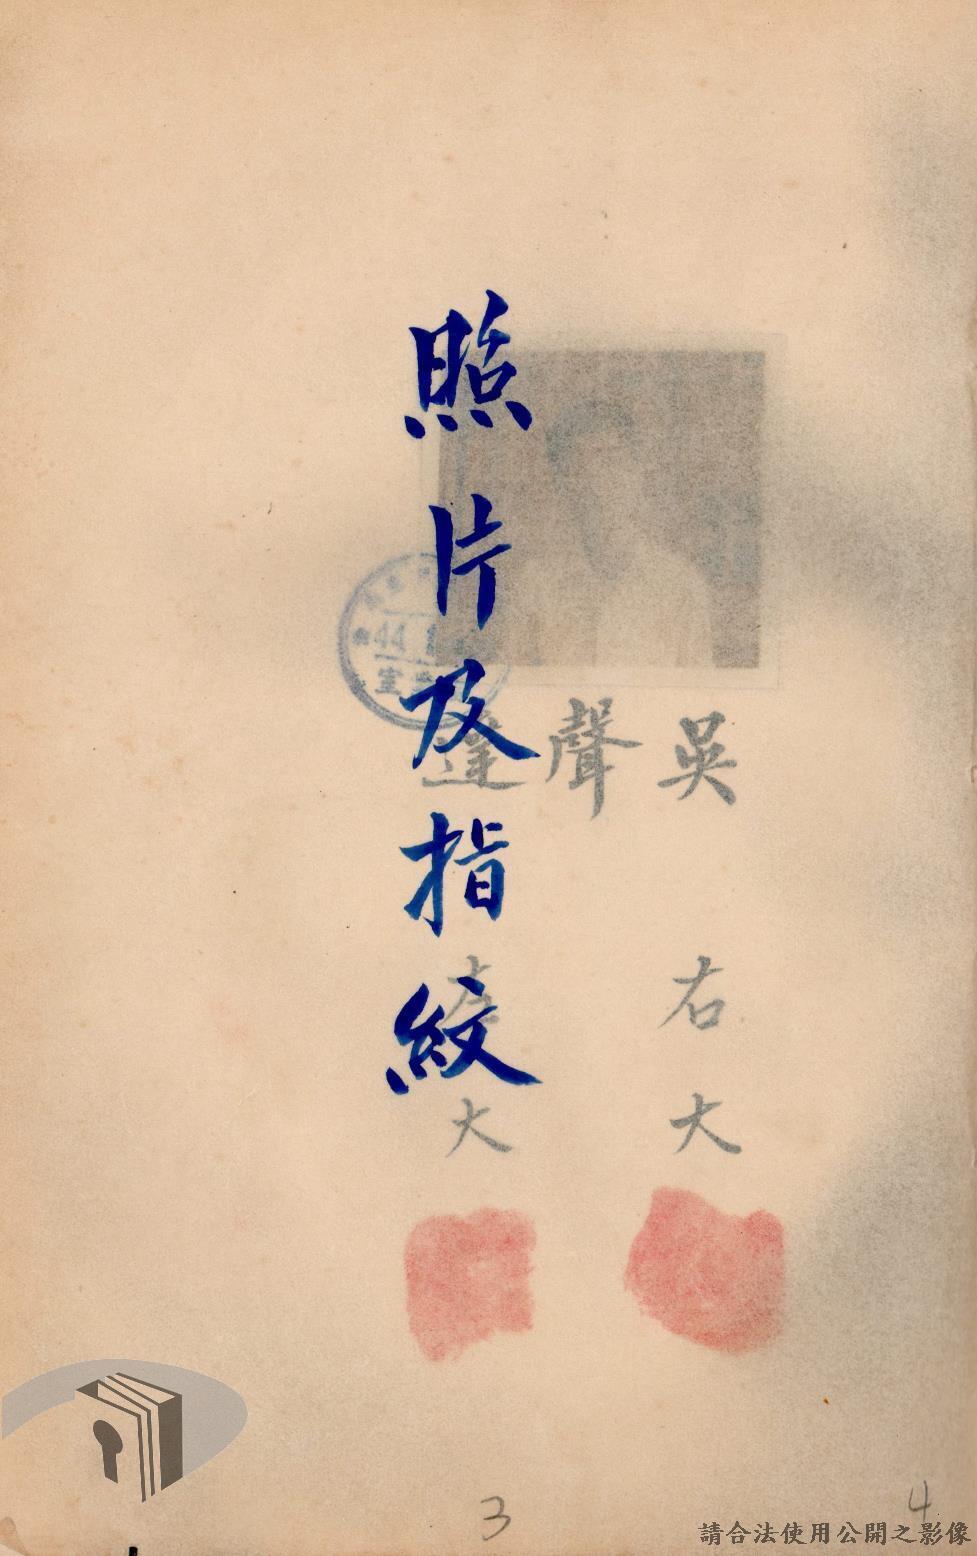 照片及指紋
吳聲達
右大
左大
44.1
室
3
4
請合法使用公開之影像